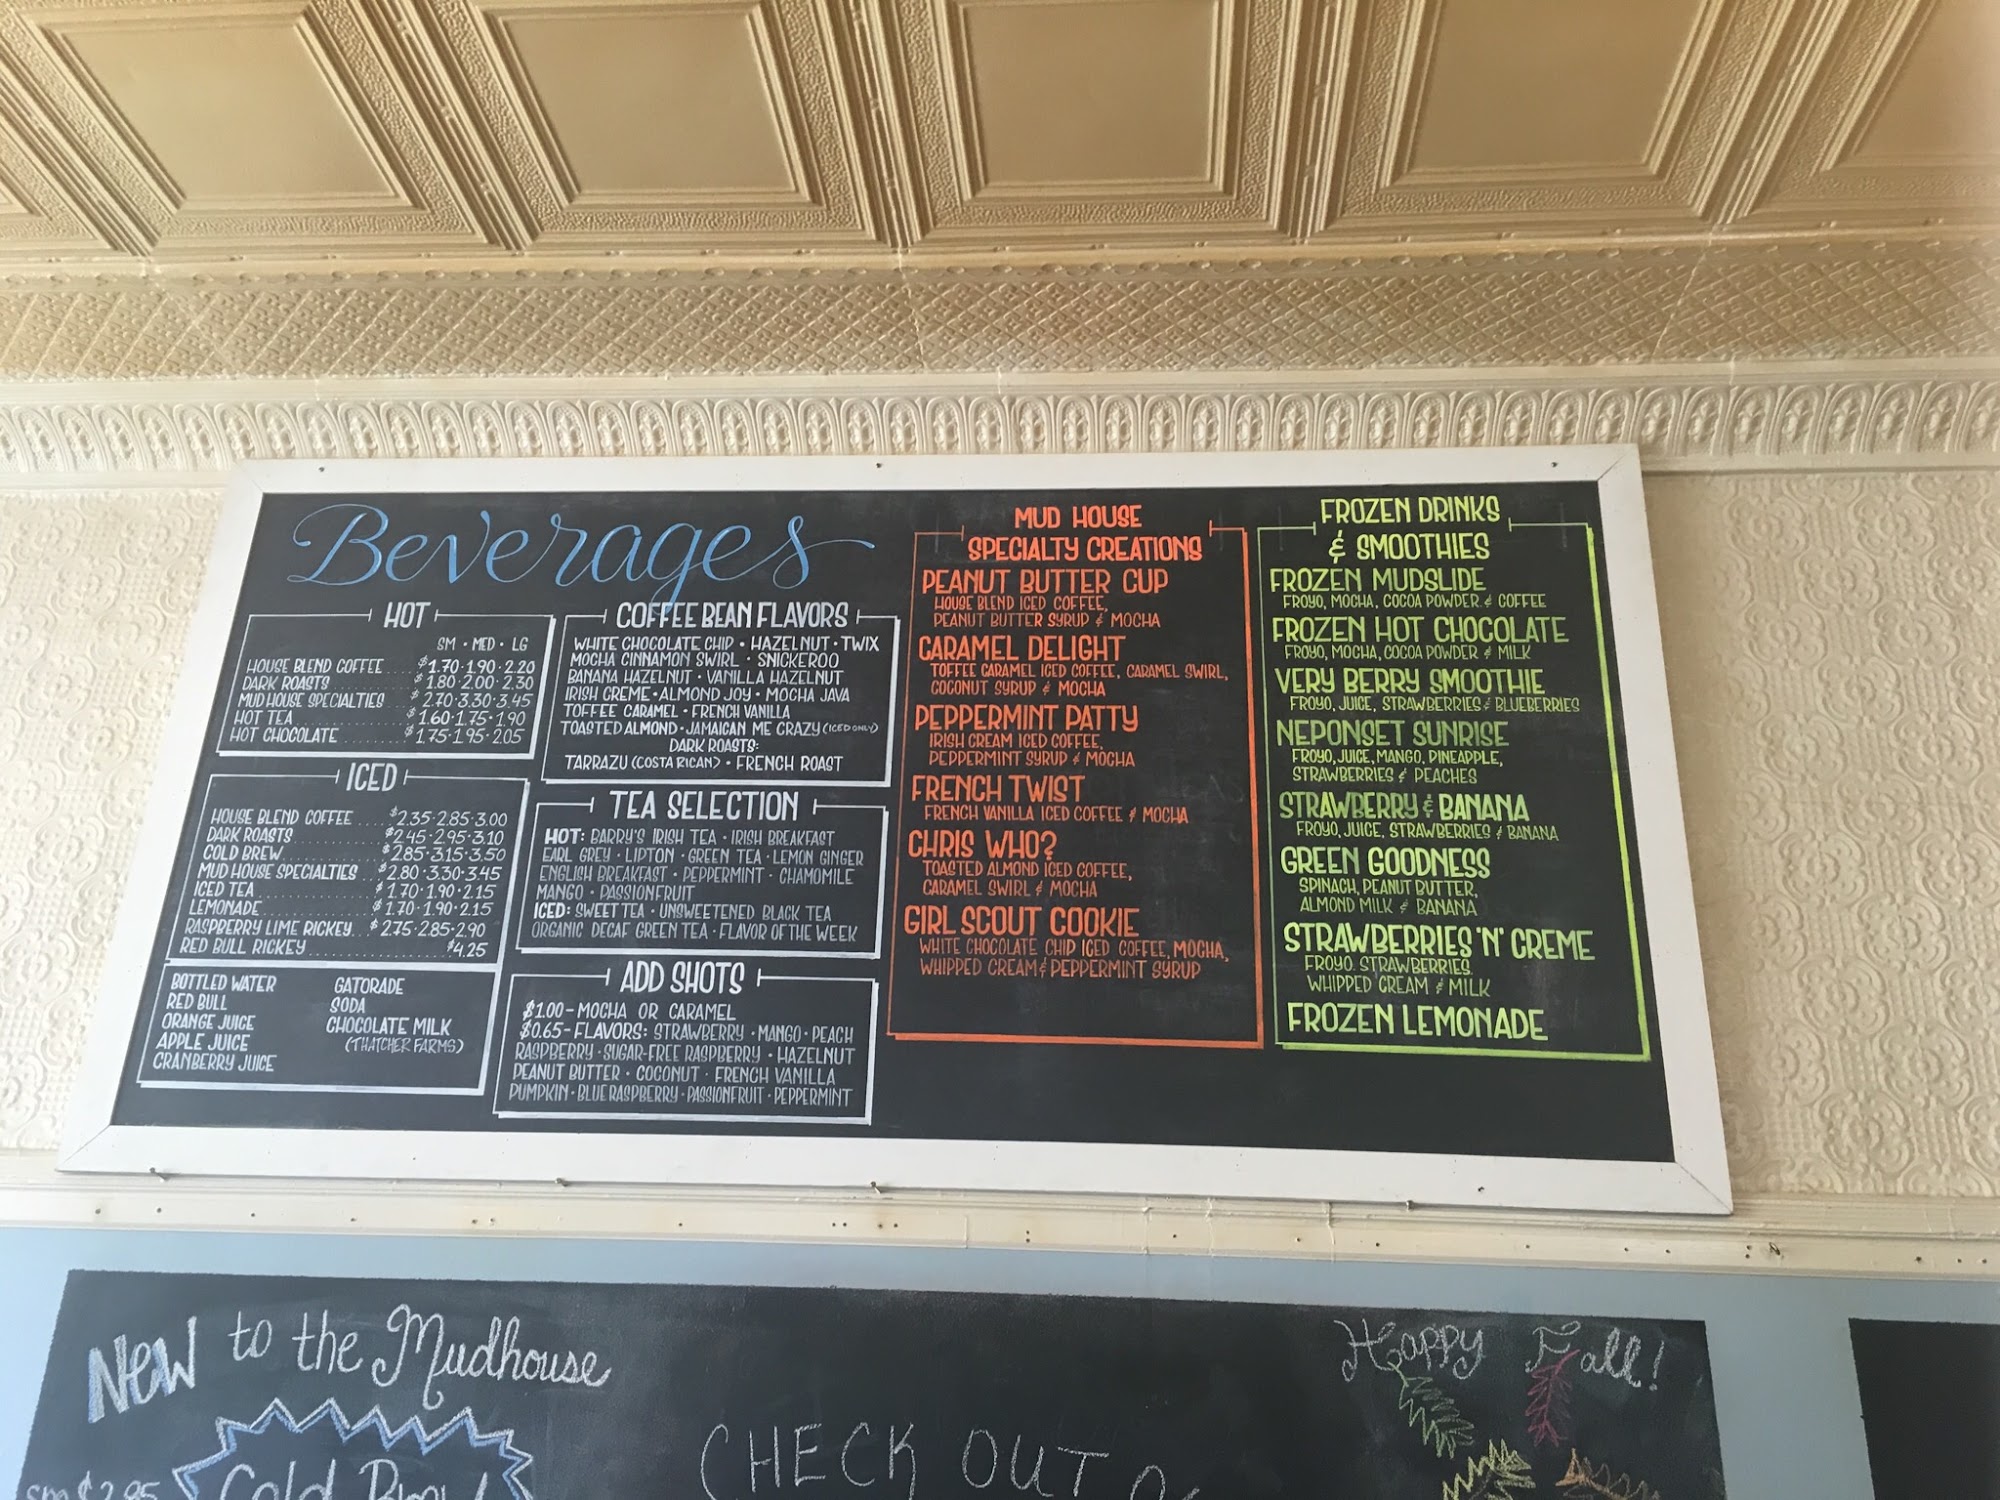 Beverages
HOT
SM • MED • LG
HOUSE BLEND COFFEE .... $1.70 • 1.90 • 2.20
DARK ROASTS .......... $1.80 • 2.00 • 2.30
MUD HOUSE SPECIALTIES .... $2.70 • 3.30 • 3.45
HOT TEA .............. $1.60 • 1.75 • 1.90
HOT CHOCOLATE ........ $1.75 • 1.95 • 2.05
ICED
HOUSE BLEND COFFEE .... $2.35 • 2.85 • 3.00
DARK ROASTS .......... $2.45 • 2.95 • 3.10
COLD BREW ............ $2.85 • 3.15 • 3.50
MUD HOUSE SPECIALTIES ... $2.80 • 3.30 • 3.45
ICED TEA ............. $1.70 • 1.90 • 2.15
LEMONADE ............. $1.70 • 1.90 • 2.15
RASPBERRY LIME RICKEY ... $2.75 • 2.85 • 2.90
RED BULL RICKEY ...................... $4.25
BOTTLED WATER
RED BULL
ORANGE JUICE
APPLE JUICE
CRANBERRY JUICE
GATORADE
SODA
CHOCOLATE MILK
(THATCHER FARMS)
COFFEE BEAN FLAVORS
WHITE CHOCOLATE CHIP • HAZELNUT • TWIX
MOCHA CINNAMON SWIRL • SNICKEROO
BANANA HAZELNUT • VANILLA HAZELNUT
IRISH CREME • ALMOND JOY • MOCHA JAVA
TOFFEE CARAMEL • FRENCH VANILLA
TOASTED ALMOND • JAMAICAN ME CRAZY (ICED ONLY)
DARK ROASTS:
TARRAZU (COSTA RICAN) • FRENCH ROAST
TEA SELECTION
HOT: BARRY'S IRISH TEA • IRISH BREAKFAST
EARL GREY • LIPTON • GREEN TEA • LEMON GINGER
ENGLISH BREAKFAST • PEPPERMINT • CHAMOMILE
MANGO • PASSIONFRUIT
ICED: SWEET TEA • UNSWEETENED BLACK TEA
ORGANIC DECAF GREEN TEA • FLAVOR OF THE WEEK
ADD SHOTS
$1.00 - MOCHA OR CARAMEL
$0.65 - FLAVORS: STRAWBERRY • MANGO • PEACH
RASPBERRY • SUGAR-FREE RASPBERRY • HAZELNUT
PEANUT BUTTER • COCONUT • FRENCH VANILLA
PUMPKIN • BLUE RASPBERRY • PASSIONFRUIT • PEPPERMINT
MUD HOUSE
SPECIALTY CREATIONS
PEANUT BUTTER CUP
HOUSE BLEND ICED COFFEE,
PEANUT BUTTER SYRUP & MOCHA
CARAMEL DELIGHT
TOFFEE CARAMEL ICED COFFEE, CARAMEL SWIRL,
COCONUT SYRUP & MOCHA
PEPPERMINT PATTY
IRISH CREAM ICED COFFEE,
PEPPERMINT SYRUP & MOCHA
FRENCH TWIST
FRENCH VANILLA ICED COFFEE & MOCHA
CHRIS WHO?
TOASTED ALMOND ICED COFFEE,
CARAMEL SWIRL & MOCHA
GIRL SCOUT COOKIE
WHITE CHOCOLATE CHIP ICED COFFEE, MOCHA,
WHIPPED CREAM & PEPPERMINT SYRUP
FROZEN DRINKS
& SMOOTHIES
FROZEN MUDSLIDE
FROYO, MOCHA, COCOA POWDER & COFFEE
FROZEN HOT CHOCOLATE
FROYO, MOCHA, COCOA POWDER & MILK
VERY BERRY SMOOTHIE
FROYO, JUICE, STRAWBERRIES & BLUEBERRIES
NEPONSET SUNRISE
FROYO, JUICE, MANGO, PINEAPPLE,
STRAWBERRIES & PEACHES
STRAWBERRY & BANANA
FROYO, JUICE, STRAWBERRIES & BANANA
GREEN GOODNESS
SPINACH, PEANUT BUTTER,
ALMOND MILK & BANANA
STRAWBERRIES 'N' CREME
FROYO, STRAWBERRIES,
WHIPPED CREAM & MILK
FROZEN LEMONADE
New to the Mudhouse
Cold Brew!
sm $2.85
CHECK OUT
Happy Fall!